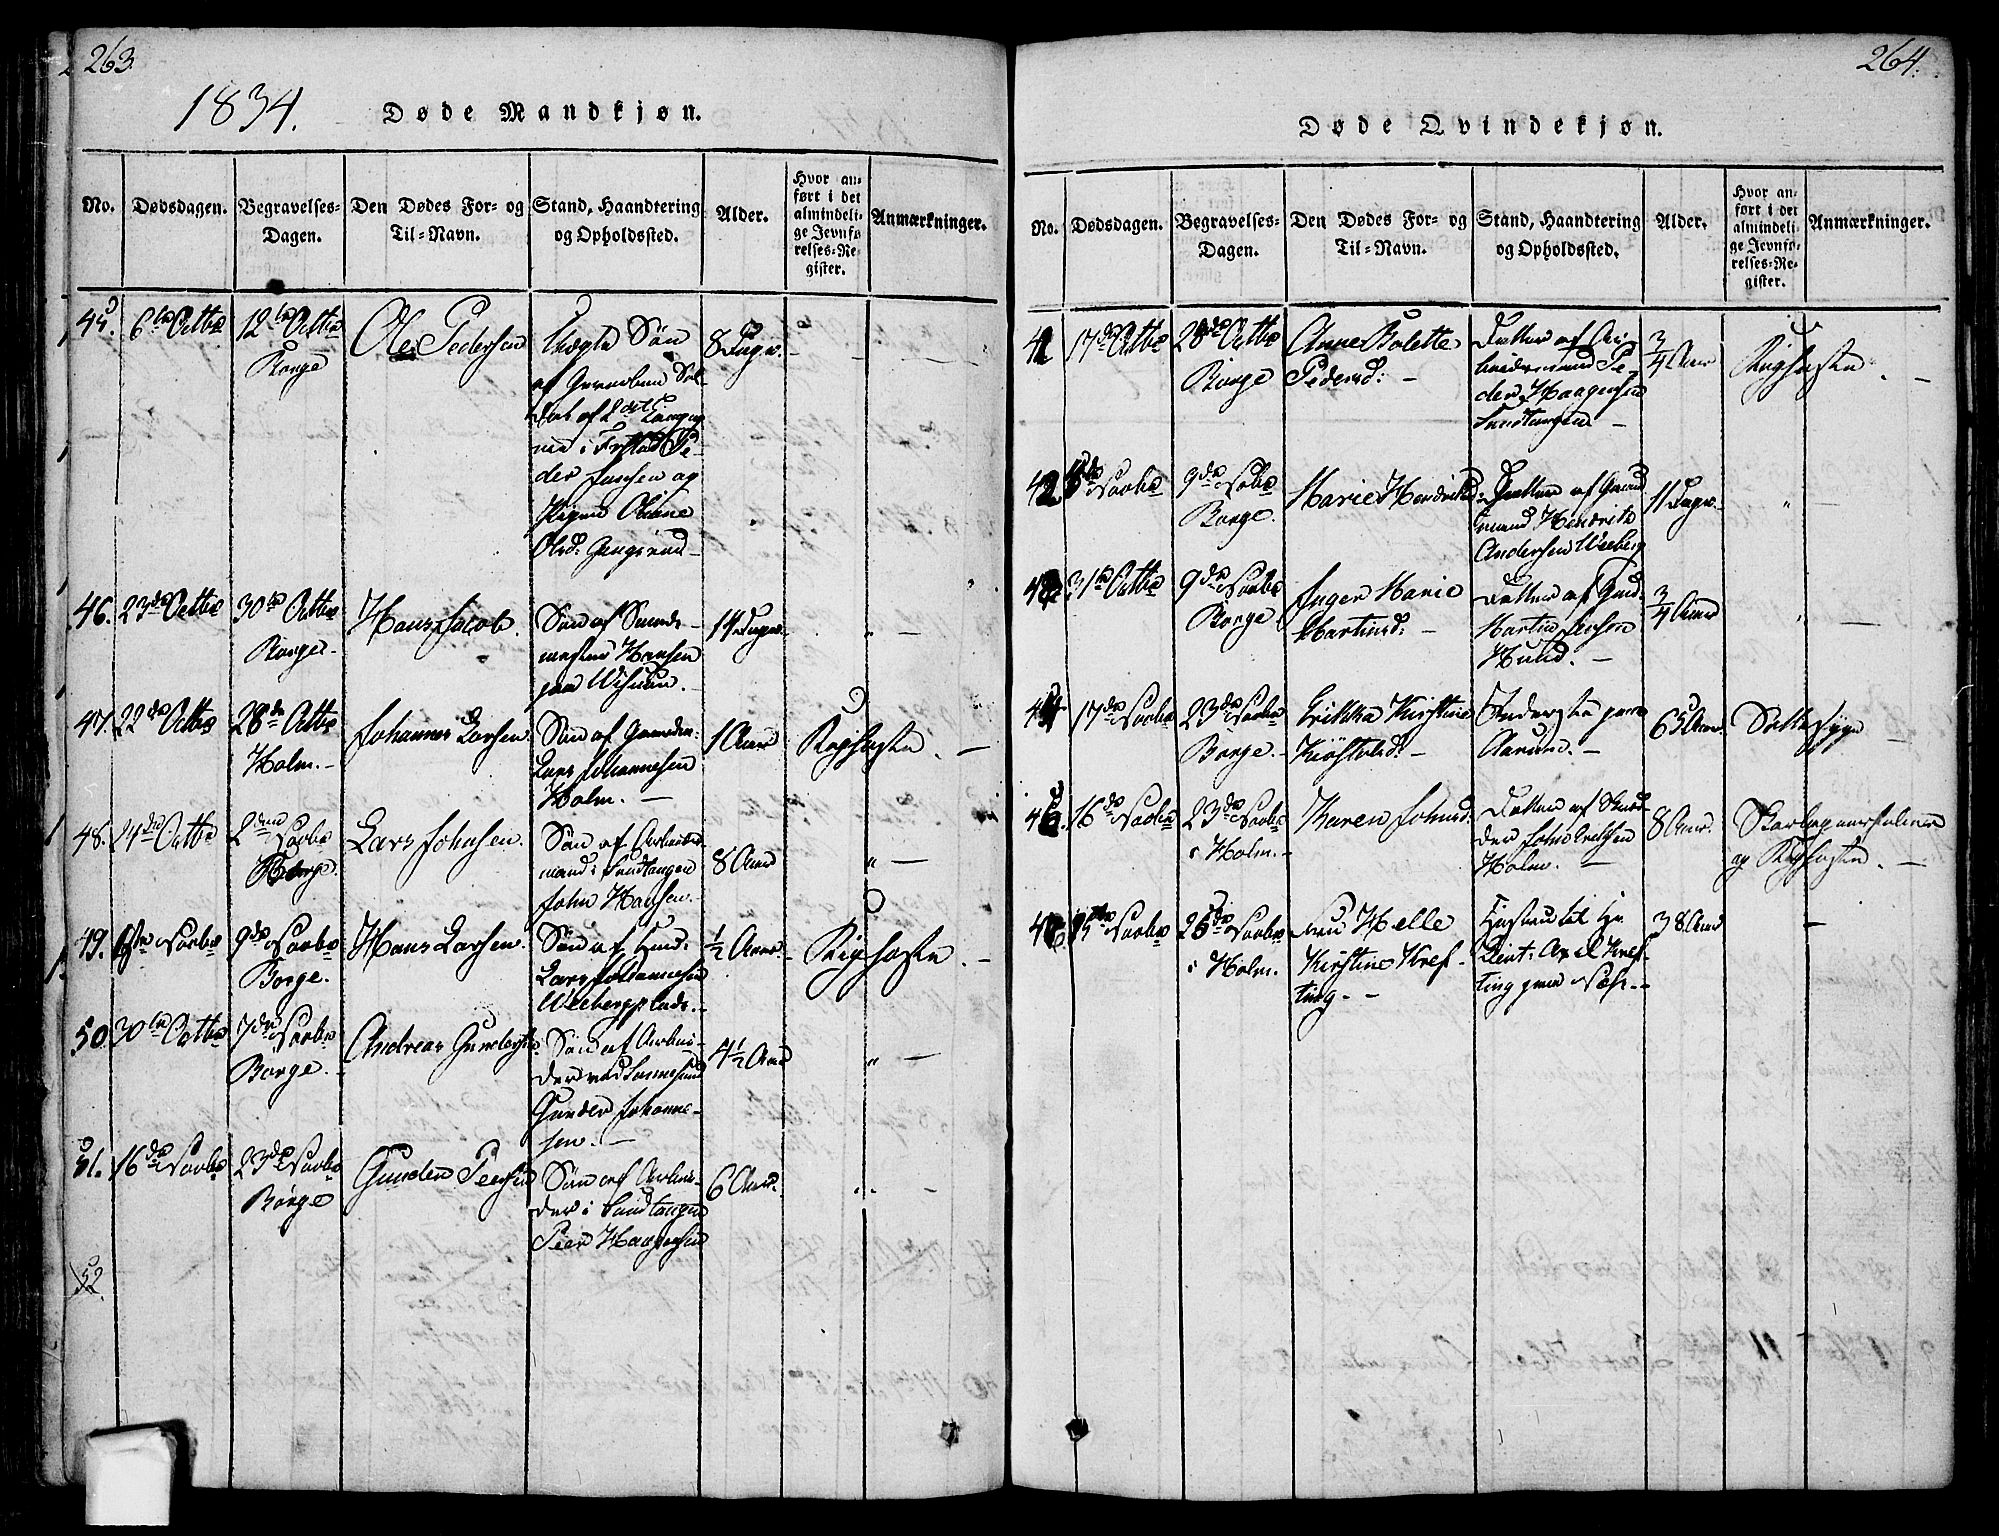 263.
1834.
Døde Mandkjøn.
No.
Dødsdagen.
Begravelses-
Dagen.
Den Dødes For- og
Til-Navn.
Stand, Haandtering
og Opholdssted.
Alder.
Hvor an-
ført i det
almindeli-
ge Jevnfø-
relses-Re-
gister.
Anmærkninger.
45. 6te Octbr 12te Octbr
Borge
Ole Pedersen
Uægte Søn
8 Dage
der Jensen og
Pigen Oliane
Olsd:
46. 23de Octbr 30te Octbr
Borge
Hans Jacob.
Søn af
Hansen
paa
14 Dage
47. 22de Octbr 28de Octbr
Holm.
Johannes Larsen
Søn af
Lars Johannesen
Holm.
1 Aar
Kighoste
48. 24de Octbr 2den Novbr
Borge.
Lars Johnsen.
Søn af Arbeids-
mand i Sundtangen
John Hansen.
8 Aar
"
49. Novbr 9de Novbr
Borge.
Hans Larsen.
Søn af Huusm:
Lars Johannesen
½ Aar
Kighoste
50. 30te Octbr 7de Novbr
Borge.
Andreas Gundersen
Søn af Arbei-
der ved Sannesund
Gunder Johanne-
sen.
4½ Aar
"
51. 16de Novbr 23de Novbr
Borge
Gunder Peersen
Søn af Arbei-
der i Sundtangen
Peer Haagensen
6 Aar.
"
52
264.
Døde Qvindekjøn.
No.
Dødsdagen.
Begravelses-
Dagen.
Den Dødes For- og
Til-Navn.
Stand, Haandtering
og Opholdssted.
Alder.
Hvor an-
ført i det
almindeli-
ge Jevnfø-
relses-Re-
gister.
Anmærkninger.
41 17de Octbr 28de Octbr
Borge
Anne Bolette
Pedersd:
Datter af Ar-
beidsmand Pe-
der Haagensen
Sundtangen
3/4 Aar
Kighoste
42 Novbr 9de Novbr
Borge.
Marie Hendriksd:
Datter af
mand Hendrik
Andersen
11 Dage
"
43 31te Octbr 9de Novbr
Borge
Inger Marie
Martinsd:
Datter af
Martin Jensen
Hund.
3/4 Aar
"
44 17de Novbr 23de Novbr
Borge.
Erikka Kirstine
Inderste paa
Aarum.
65 Aar.
45. 16de Novbr 23de Novbr
i Holm.
Karen Johnsd.
Datter af Skræd-
der John
Holm.
8 Aar.
Skarlagensfeber
og Kighoste.
46 Novbr 26de Novbr
i Holm.
Fru Helle
Kirstine Kref-
ting.
Hustru til Hr
Lieut: Axel Kref-
ting paa Næs.
38 Aar